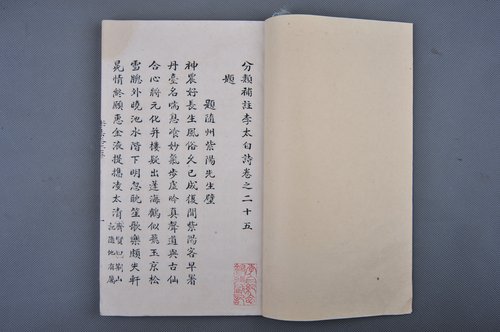 分類補註李太白詩卷之二十五
題
題隨州紫陽先生壁
神農好長生風俗久已成復聞紫陽客早署
丹臺名喘息飡妙氣步虛吟真聲道與古仙
合心將元化并樓疑出蓬海鶴似飛玉京松
雪牕外曉池水階下明忽耽笙歌樂頗失軒
冕情終願惠金液提攜凌太清齊賢曰荆山
記隨地有厲